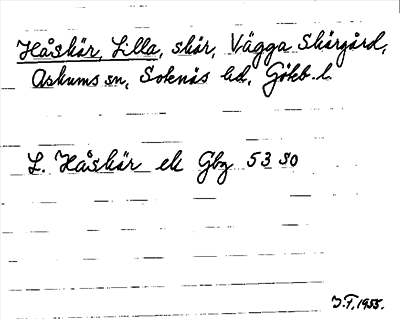 Håskär, Lilla, skär, Vägga Skärgård,
Askums sn, Sotenäs hd, Gökb. l.
L. Håskär ek Gbg 53 SO
J.F. 1955.